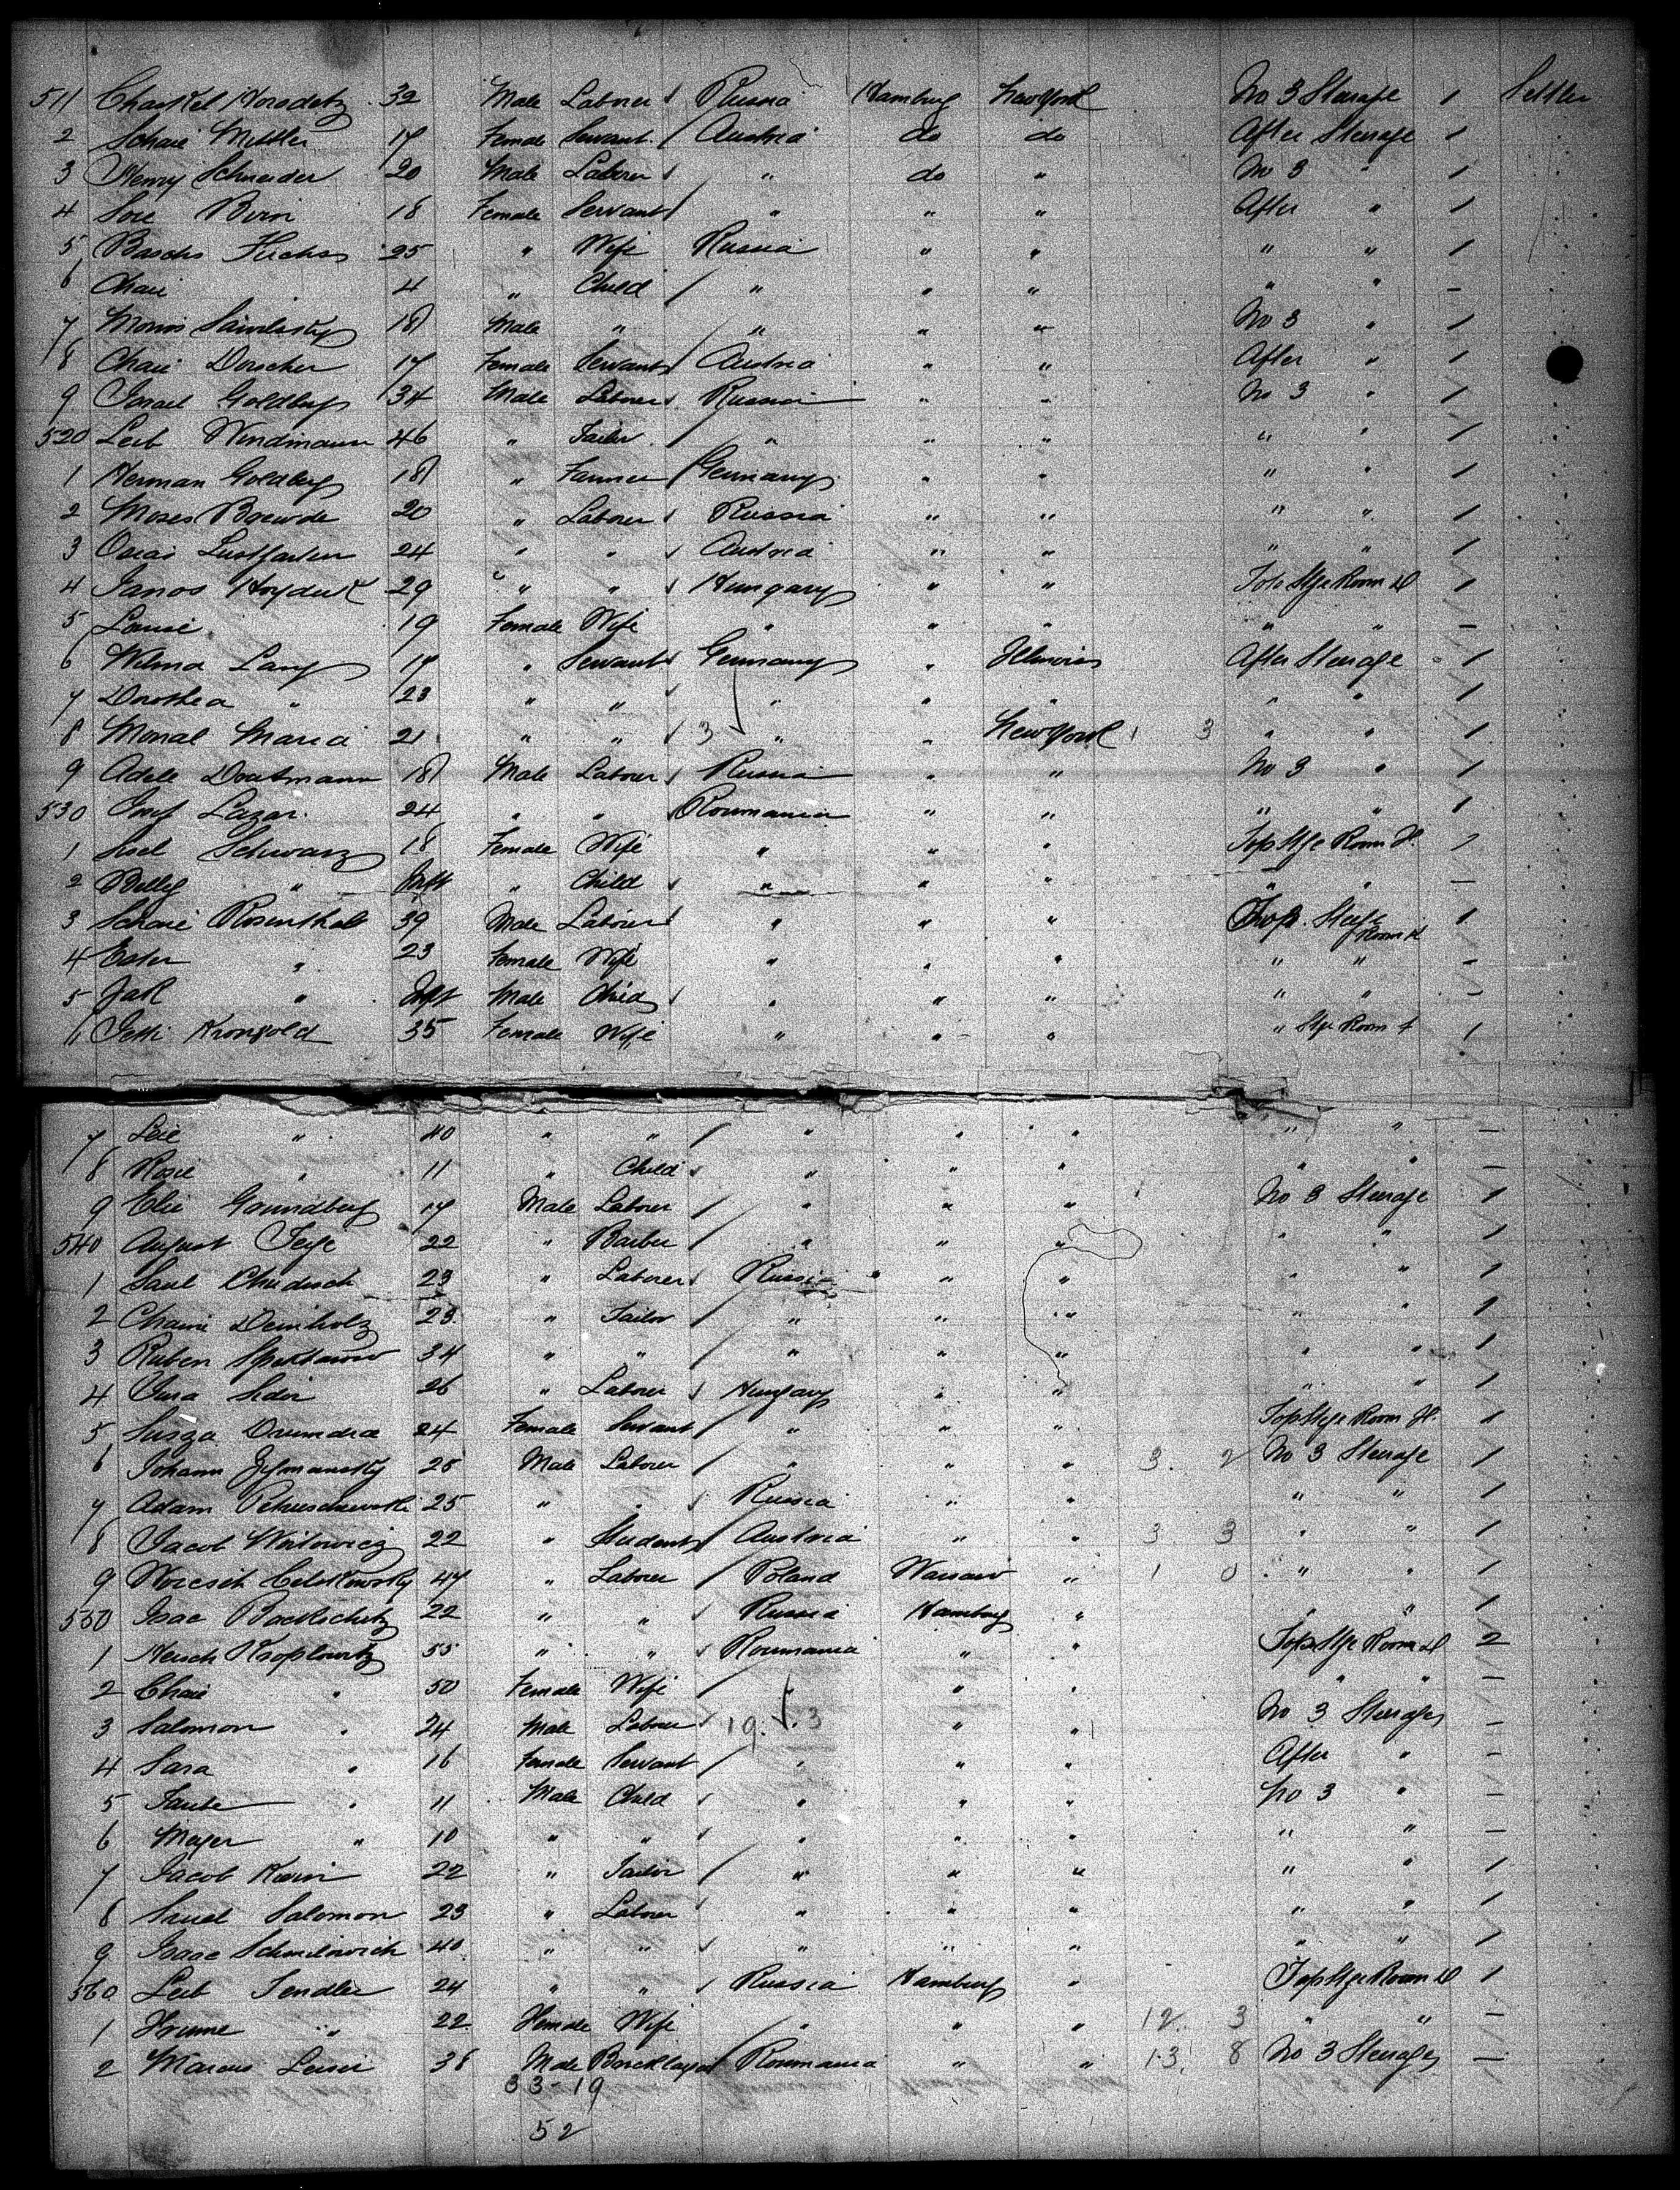 511 Chaskel Horodetz 32 Male Laborer Russia Hamburg New York No 3 Steerage 1 Settler
2 Scheie Mittler 17 Female Servant Austria do do After Steerage 1
3 Henry Schneider 20 Male Laborer " do " No 3 " 1
4 Sore Birn 18 Female Servant " " " After " 1
5 Baschs Fuchs 25 " Wife Russia " " " " 1
6 Chaie 4 " Child " " " " " —
7 Morris 18 Male " " " " No 3 " 1
8 Chaie Dorscher 17 Female Servant Austria " " After " 1
9 Israel Goldberg 34 Male Laborer Russia " " No 3 " 1
520 Leib Windmann 46 " Tailor " " " " " 1
1 Herman Goldberg 18 " Farmer Germany " " " " 1
2 Moses Browde 20 " Laborer Russia " " " " 1
3 Oscar Lustgarten 24 " " Austria " " " " 1
4 Janos Hoyduk 29 " " Hungary " " Top Stge Room D 1
5 Lausi 19 Female Wife " " " " " —
6 Wilma Lang 17 " Servant Germany " Illinois After Steerage 1
7 Dorothea " 23 " " " " " " " 1
8 Monal Maria 21 " " 3 " " New York 3 " " 1
9 Adele Dortmann 18 Male Laborer Russia " " No 3 " 1
530 Josef Lazar 24 " " Roumania " " " " 1
1 Sosel Schwarz 18 Female Wife " " " Top Stge Room H. 1
2 Belly " Inft " Child " " " " " —
3 Scheie Rosenthal 39 Male Laborer " " " Top. Stege Room H 1
4 Ester " 23 Female Wife " " " " " —
5 Jak " Inft Male Child " " " " " —
6 Jetti Krongold 35 Female Wife " " " " Stge Room 1
7 Leie " 40 " " " " " " " —
8 Rosie " 11 " Child " " " " " —
9 Elie Grundberg 17 Male Laborer " " " No 3 Steerage 1
540 August Feige 22 " Barber " " " " " 1
1 Saul Chudisch 23 " Laborer Russia " " " " 1
2 Chaim Deinholz 23 " Tailor " " " " " 1
3 Ruben 34 " " " " " " " 1
4 26 " Laborer Hungary " " " " 1
5 Susza Drumdra 24 Female Servant " " " Top Stge Room H. 1
6 Johann 25 Male Laborer " " " 3. 2 No 3 Steerage 1
7 Adam 25 " " Russia " " " " 1
8 Jacob Woitowicz 22 " Student Austria " " 3 3 " " 1
9 47 " Laborer Poland Warsaw " 1 0 " " 1
550 Isac 22 " " Russia Hamburg " " " 1
1 Hersch Koplowitz 55 " " Roumania " " Top Stge Room D 2
2 Chaie " 50 Female Wife " " " " " —
3 Salomon " 24 Male Laborer 19. 3 " " No 3 Steerage —
4 Sara " 16 Female Servant " " " After " —
5 Taube " 11 Male Child " " " No 3 " —
6 Mayer " 10 " " " " " " " —
7 Jacob 22 " Tailor " " " " " 1
8 Saul Salomon 23 " Laborer " " " " " 1
9 Isaac Schmilowich 40 " " " " " " " 1
560 Leib Sendler 24 " " Russia Hamburg " Top Stge Room D 1
1 Frume " 22 Female Wife " " " 12. 3 " " —
2 Marcus Leiser 38 Male Roumania " " 13. 8 No 3 Steerage —
33-19
52